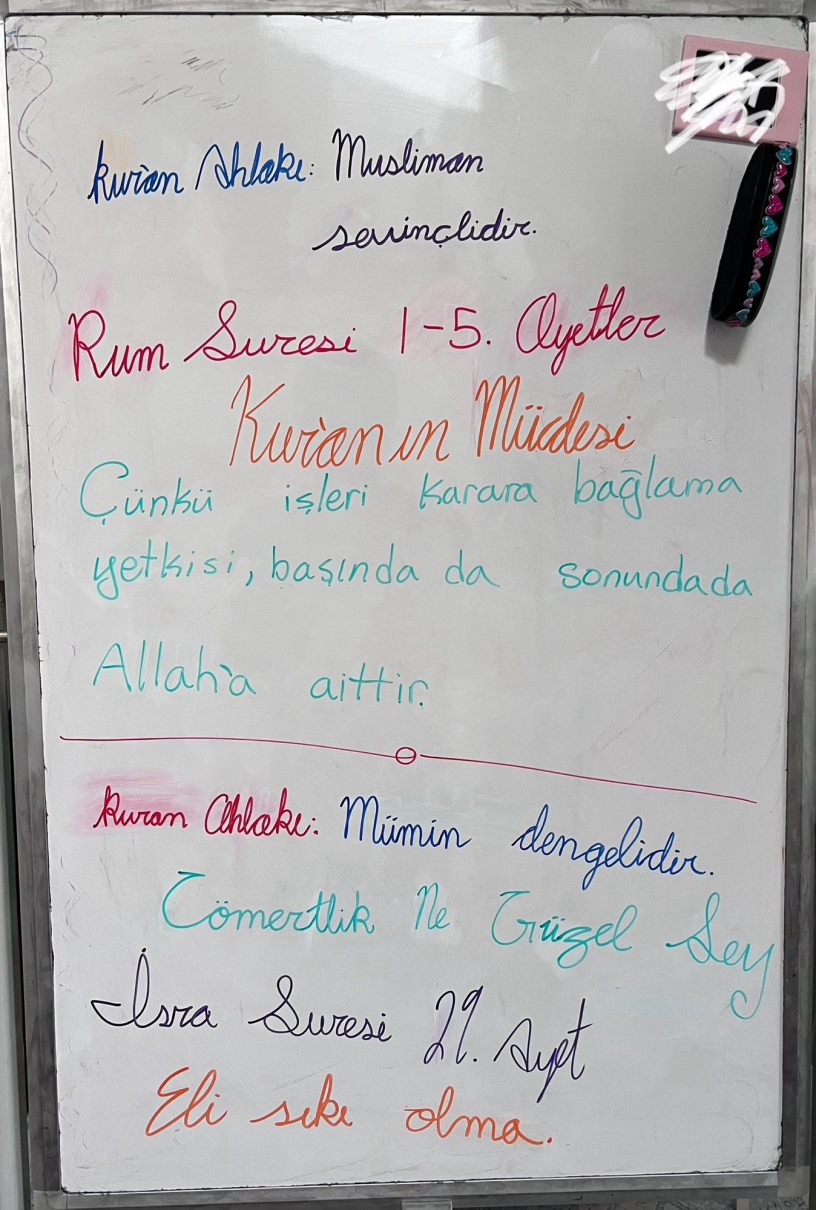 Kur'an Ahlakı: Musliman
sevinçlidir.
Rum Suresi 1-5. Ayetler
Kur'an'ın Müjdesi
Çünkü işleri karara bağlama
yetkisi, başında da sonundada
Allah'a aittir.
Kuran Ahlakı: Mümin dengelidir.
Cömertlik Ne Güzel Şey
İsra Suresi 29. Ayet
Eli sıkı olma.